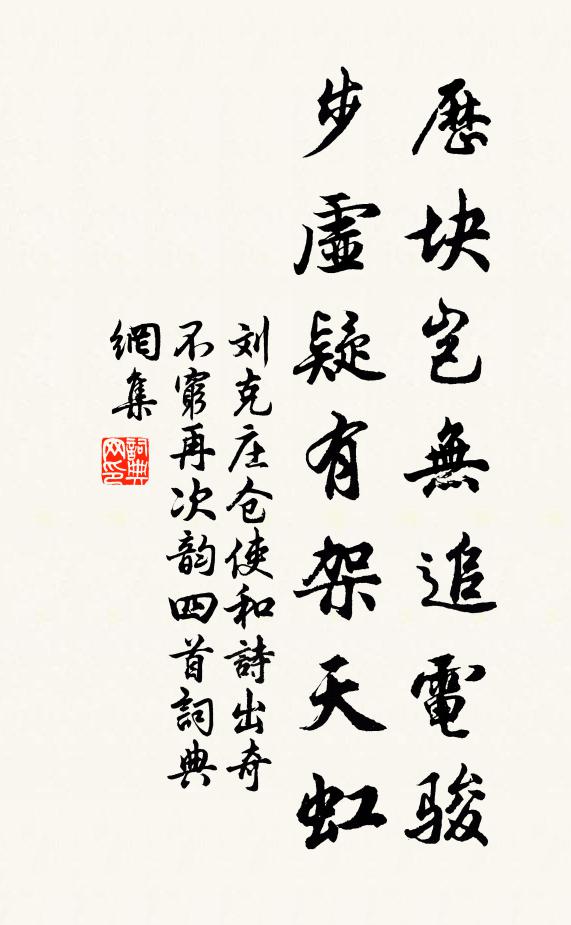 歷块岂無追電骏
步虛疑有架天虹
刘克庄仓使和詩出奇
不窮再次韵四首詞典
網集
詞典网印